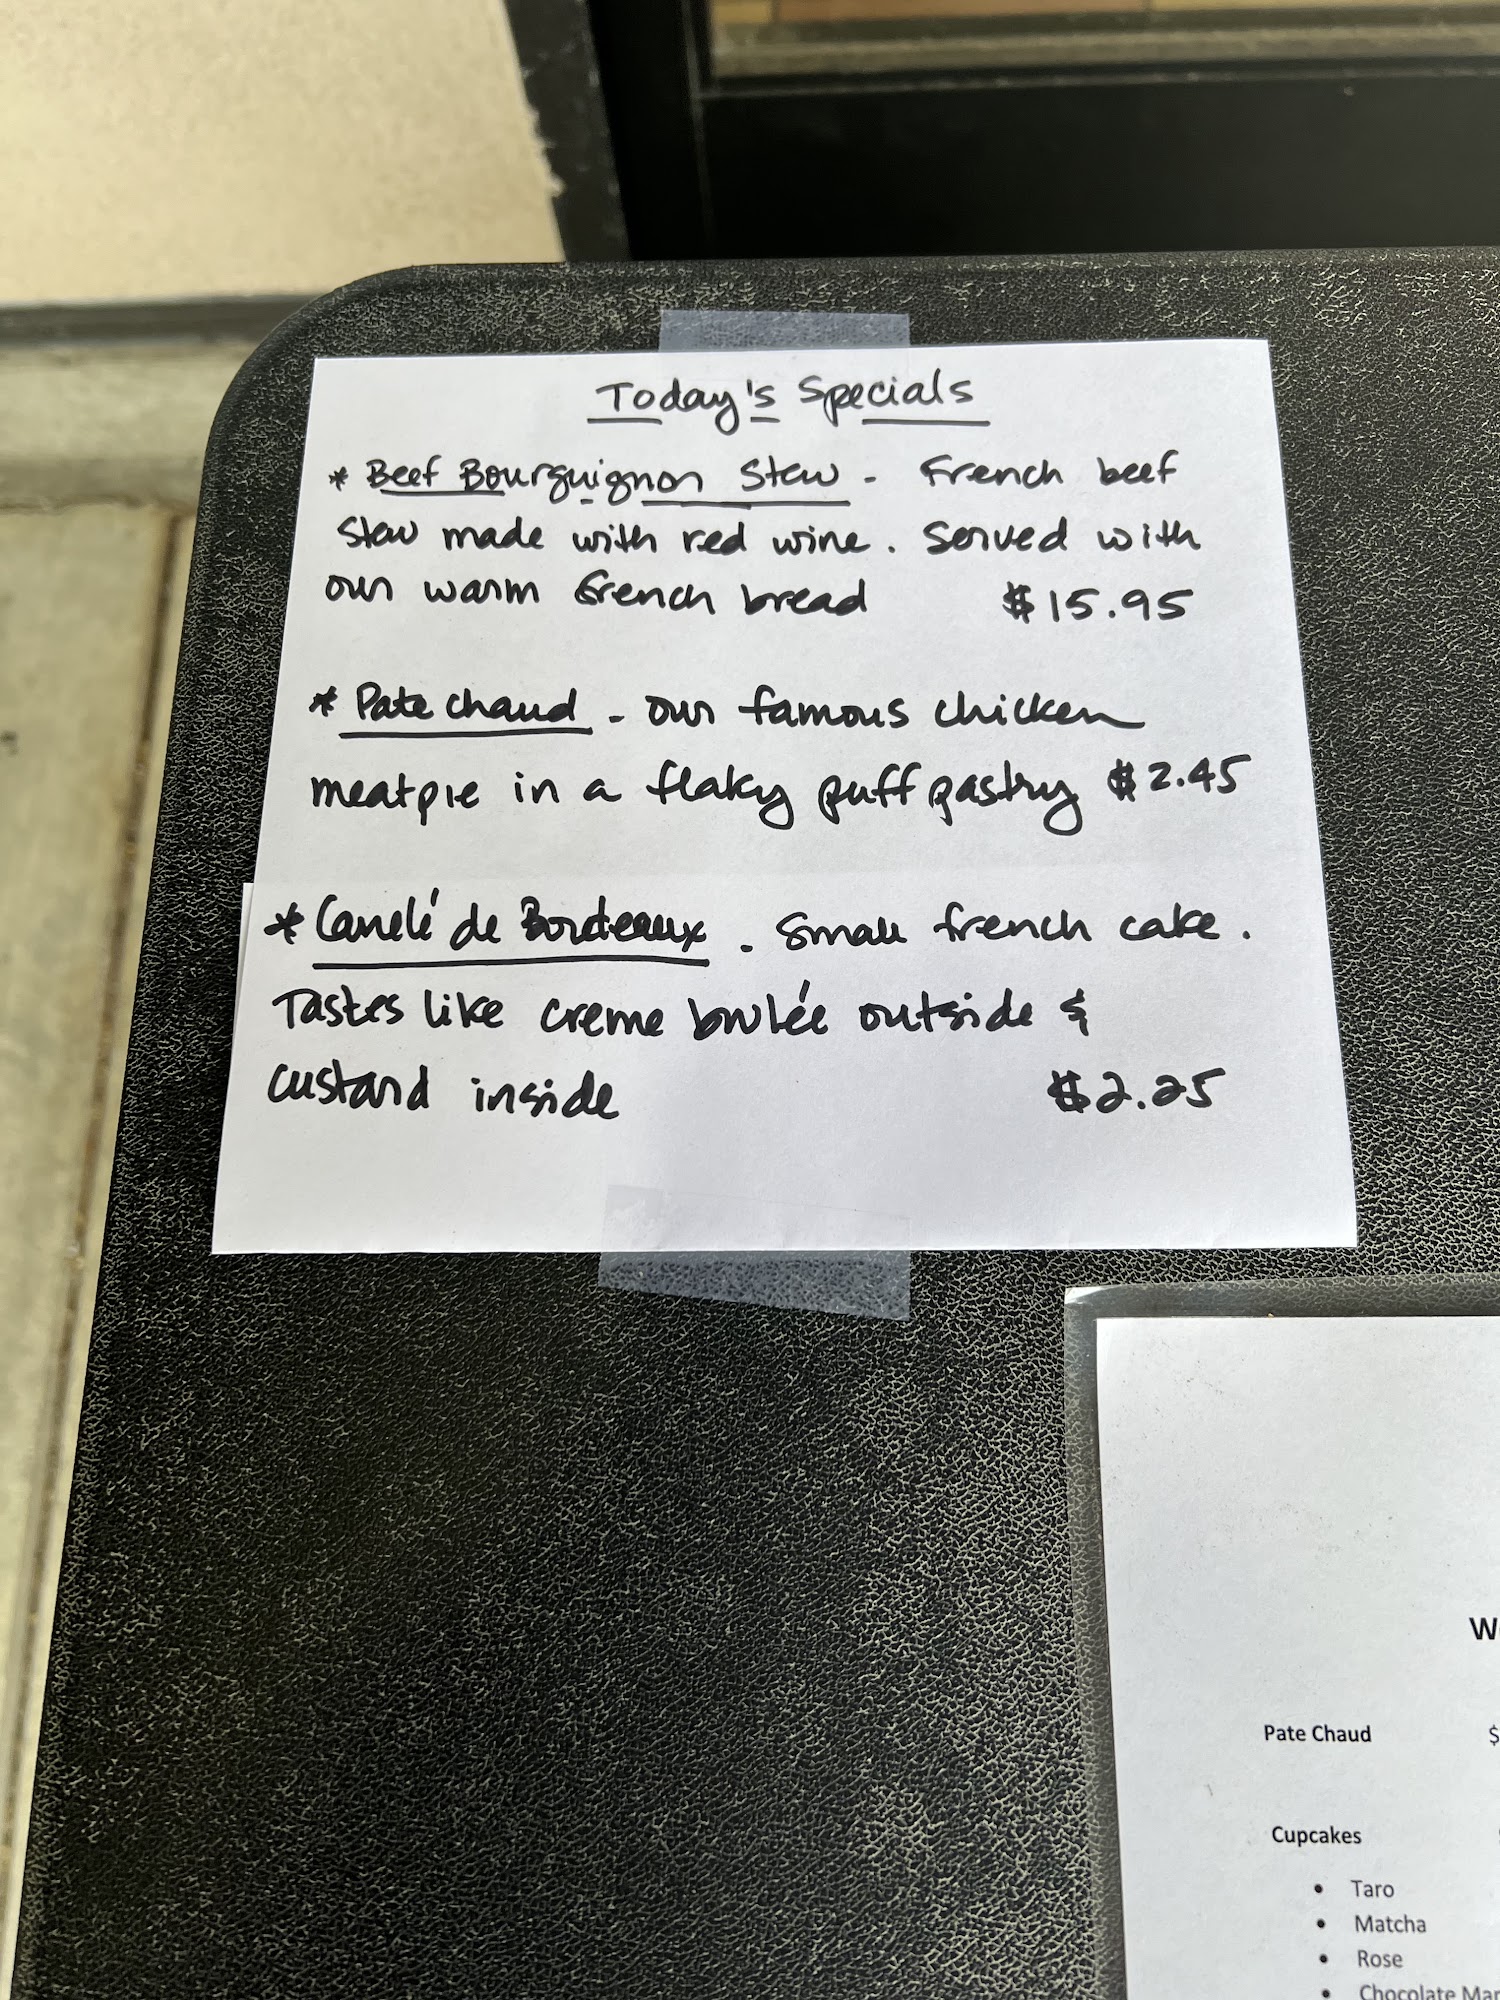 Today's Specials
* Beef Bourguignon Stew - French beef
stew made with red wine. Served with
our warm french bread $15.95
* Pate chaud - our famous chicken
meatpie in a flaky puff pastry $2.45
* Canelé de Bordeaux - Small french cake.
Tastes like creme brulée outside &
custard inside $2.25
Pate Chaud $
Cupcakes
• Taro
• Matcha
• Rose
• Chocolate